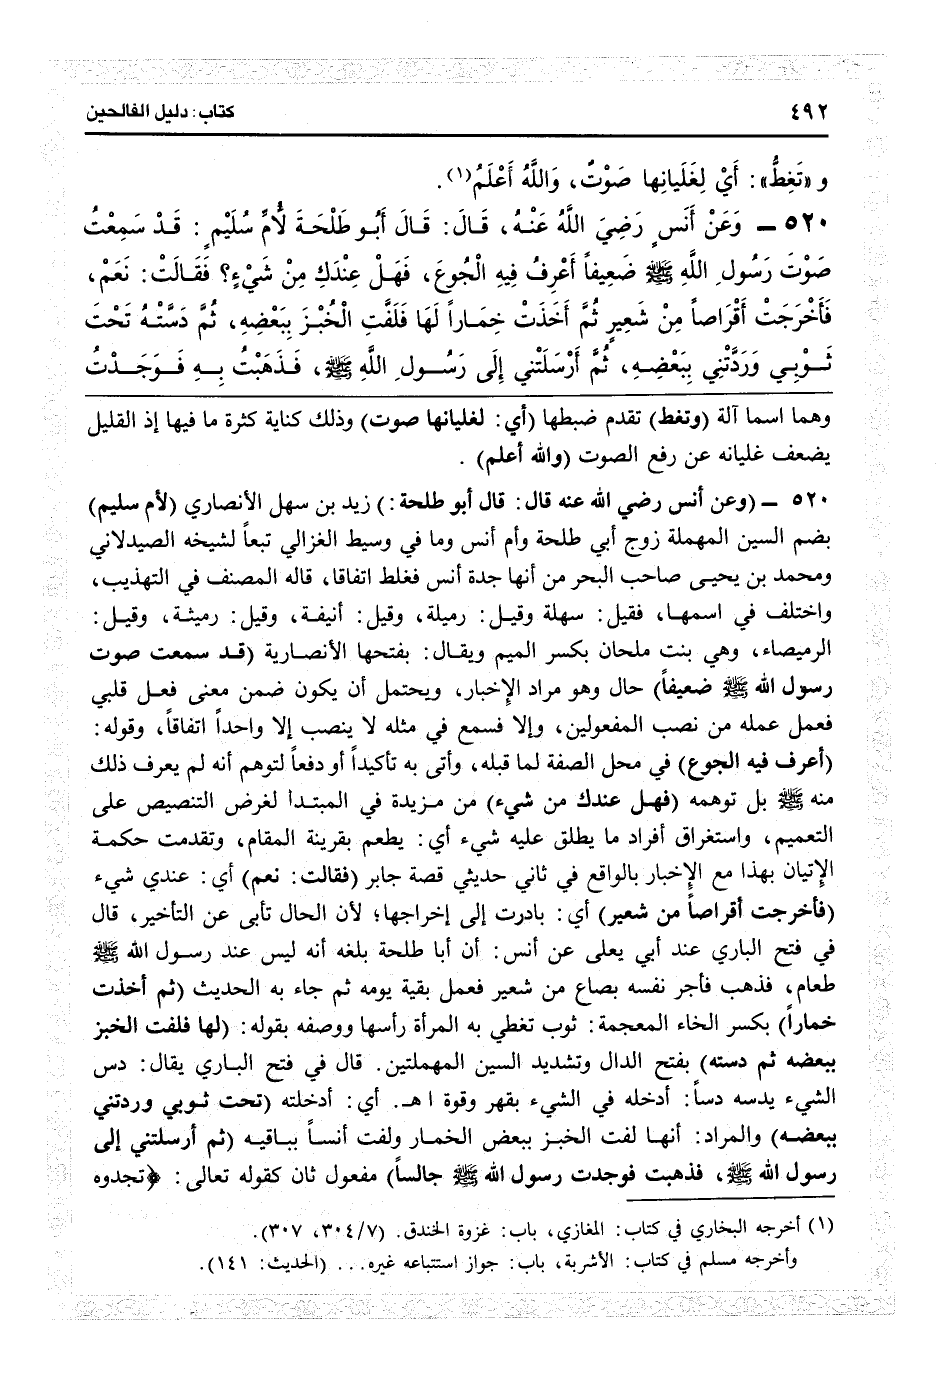 ٤٩٢ كتاب: دليل الفالحين
و «تَغِطُّ»: أَيْ لِغَلَيانِها صَوْتٌ، وَاللَّهُ أَعْلَمُ(١).
٥٢٠ ــ وَعَنْ أَنَسٍ رَضِيَ اللَّهُ عَنْهُ، قَالَ: قَالَ أَبُو طَلْحَةَ لأُمِّ سُلَيْمٍ: قَدْ سَمِعْتُ
صَوْتَ رَسُولِ اللَّهِ ﷺ ضَعِيفاً أَعْرِفُ فِيهِ الْجُوعَ، فَهَلْ عِنْدَكِ مِنْ شَيْءٍ؟ فَقَالَتْ: نَعَمْ،
فَأَخْرَجَتْ أَقْرَاصاً مِنْ شَعِيرٍ ثُمَّ أَخَذَتْ خِمَاراً لَهَا فَلَفَّتِ الْخُبْزَ بِبَعْضِهِ، ثُمَّ دَسَّتْهُ تَحْتَ
ثَوْبِي وَرَدَّتْنِي بِبَعْضِهِ، ثُمَّ أَرْسَلَتْنِي إِلَى رَسُولِ اللَّهِ ﷺ، فَذَهَبْتُ بِهِ فَوَجَدْتُ
وهما اسما آلة (وتغط) تقدم ضبطها (أي: لغليانها صوت) وذلك كناية كثرة ما فيها إذ القليل
يضعف غليانه عن رفع الصوت (والله أعلم) .
٥٢٠ ــ (وعن أنس رضي الله عنه قال: قال أبو طلحة:) زيد بن سهل الأنصاري (لأم سليم)
بضم السين المهملة زوج أبي طلحة وأم أنس وما في وسيط الغزالي تبعاً لشيخه الصيدلاني
ومحمد بن يحيى صاحب البحر من أنها جدة أنس فغلط اتفاقا، قاله المصنف في التهذيب،
واختلف في اسمها، فقيل: سهلة وقيل: رميلة، وقيل: أنيفة، وقيل: رميثة، وقيل:
الرميصاء، وهي بنت ملحان بكسر الميم ويقال: بفتحها الأنصارية (قد سمعت صوت
رسول الله ﷺ ضعيفاً) حال وهو مراد الإخبار، ويحتمل أن يكون ضمن معنى فعل قلبي
فعمل عمله من نصب المفعولين، وإلا فسمع في مثله لا ينصب إلا واحداً اتفاقاً، وقوله:
(أعرف فيه الجوع) في محل الصفة لما قبله، وأتى به تأكيداً أو دفعاً لتوهم أنه لم يعرف ذلك
منه ﷺ بل توهمه (فهل عندك من شيء) من مزيدة في المبتدأ لغرض التنصيص على
التعميم، واستغراق أفراد ما يطلق عليه شيء أي: يطعم بقرينة المقام، وتقدمت حكمة
الإتيان بهذا مع الإخبار بالواقع في ثاني حديثي قصة جابر (فقالت: نعم) أي: عندي شيء
(فأخرجت أقراصاً من شعير) أي: بادرت إلى إخراجها؛ لأن الحال تأبى عن التأخير، قال
في فتح الباري عند أبي يعلى عن أنس: أن أبا طلحة بلغه أنه ليس عند رسول الله ﷺ
طعام، فذهب فأجر نفسه بصاع من شعير فعمل بقية يومه ثم جاء به الحديث (ثم أخذت
خماراً) بكسر الخاء المعجمة: ثوب تغطي به المرأة رأسها ووصفه بقوله: (لها فلفت الخبز
ببعضه ثم دسته) بفتح الدال وتشديد السين المهملتين. قال في فتح الباري يقال: دس
الشيء يدسه دساً: أدخله في الشيء بقهر وقوة اهـ. أي: أدخلته (تحت ثوبي وردتني
ببعضه) والمراد: أنها لفت الخبز ببعض الخمار ولفت أنساً بباقيه (ثم أرسلتني إلى
رسول الله ﷺ، فذهبت فوجدت رسول الله ﷺ جالساً) مفعول ثان كقوله تعالى: ﴿تجدوه
(١) أخرجه البخاري في كتاب: المغازي، باب: غزوة الخندق. (٣٠٤/٧، ٣٠٧).
وأخرجه مسلم في كتاب: الأشربة، باب: جواز استتباعه غيره... (الحديث: ١٤١).